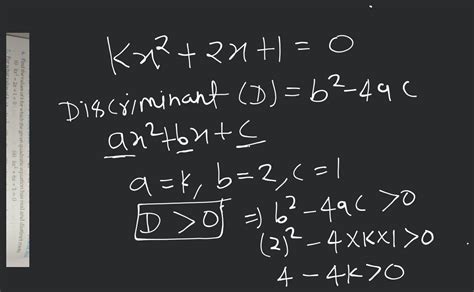 kx² + 2x + 1 = 0
Discriminant (D) = b² - 4ac
ax² + bx + c
a = k, b = 2, c = 1
D > 0 ⇒ b² - 4ac > 0
(2)² - 4 × k × 1 > 0
4 - 4k > 0